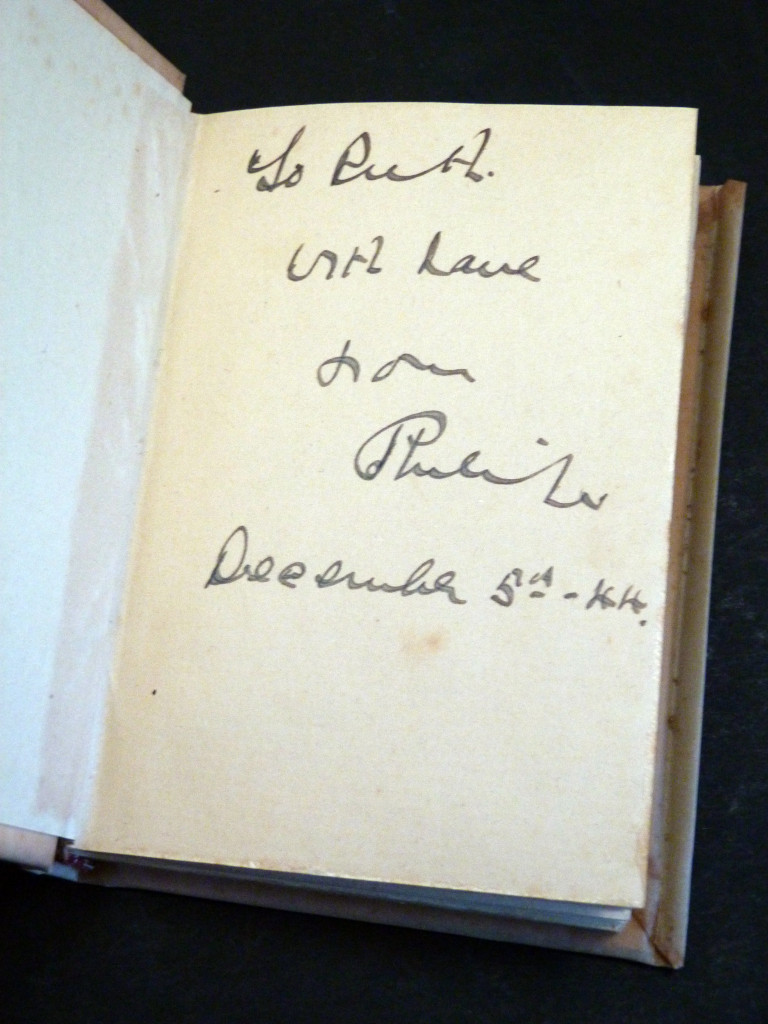 To Ruth.
with love
from
Philip
December 5th - 44.